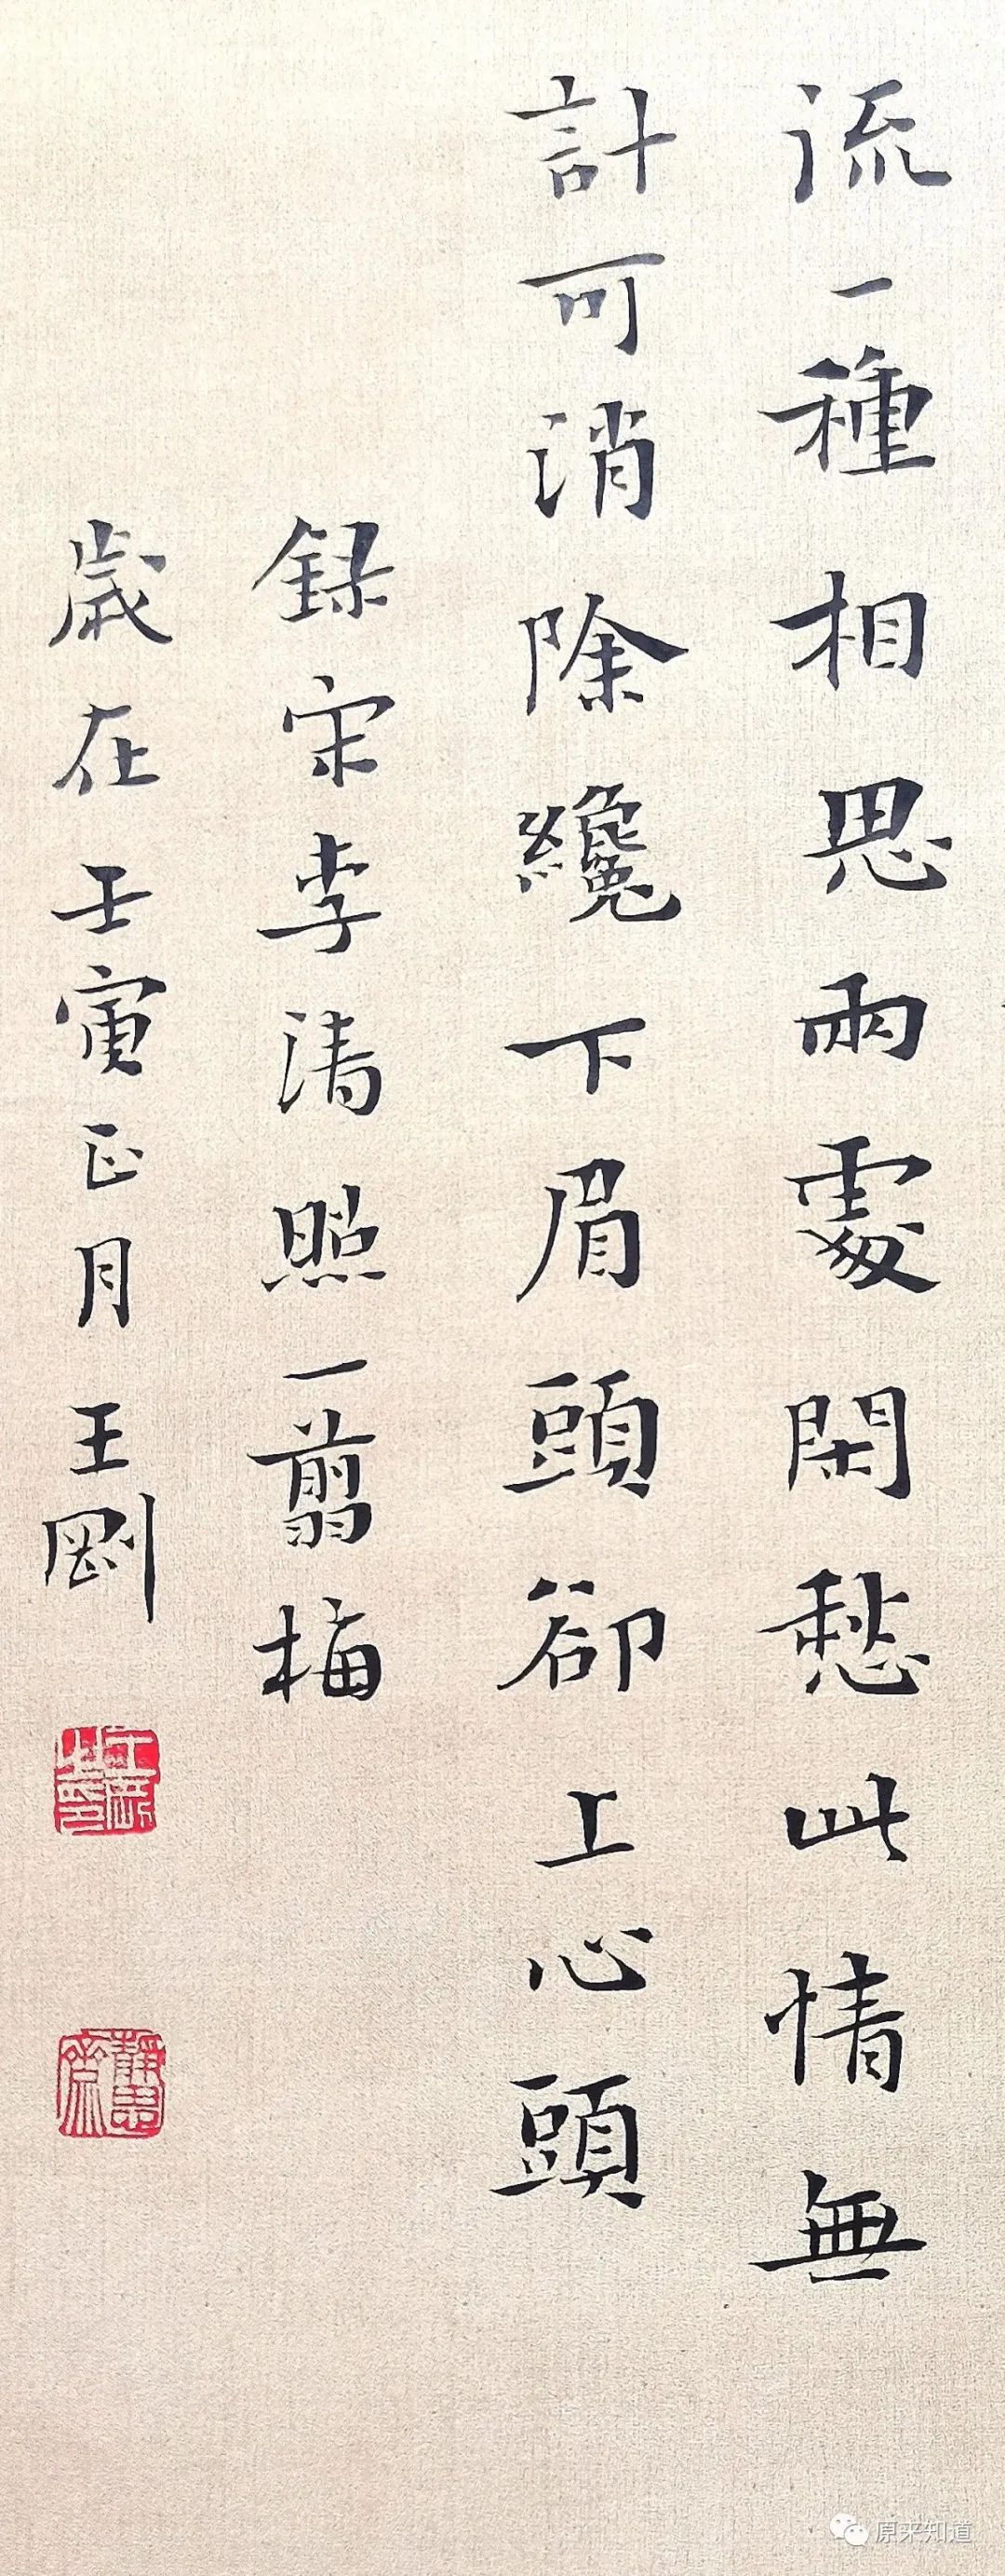 流一種相思兩處閑愁此情無
計可消除纔下眉頭卻上心頭
録宋李清照一翦梅
歲在壬寅正月王剛
王剛之印
靜思齋
原来知道